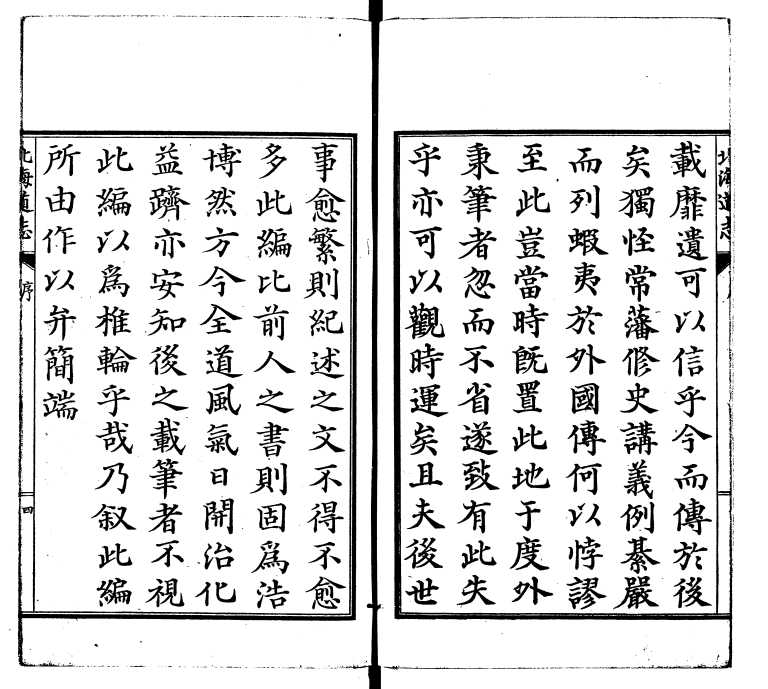 載靡遺可以信乎今而傳於後
矣獨怪常藩修史講義例綦嚴
而列蝦夷於外國傳何以悖謬
至此豈當時既置此地于度外
秉筆者忽而不省遂致有此失
乎亦可以觀時運矣且夫後世
事愈繁則紀述之文不得不愈
多此編比前人之書則固爲浩
博然方今全道風氣日開治化
益躋亦安知後之載筆者不視
此編以爲椎輪乎哉乃叙此編
所由作以弁簡端
北海道志
序
四